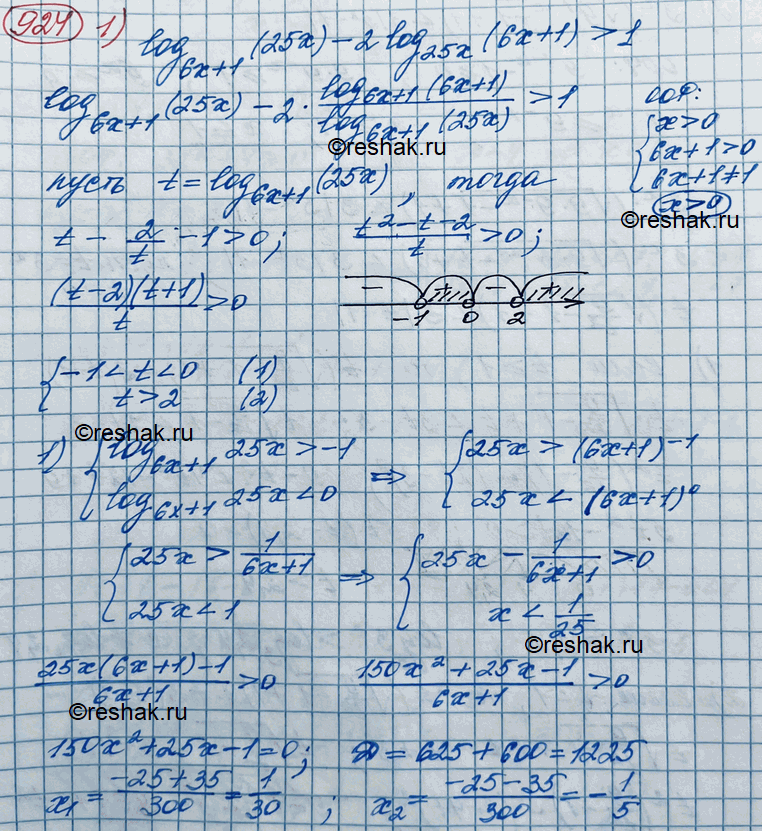 924 1) log_{6x+1}(25x) - 2 log_{25x}(6x+1) > 1
log_{6x+1}(25x) - 2 · \frac{log_{6x+1}(6x+1)}{log_{6x+1}(25x)} > 1
ООФ:
{ x > 0
6x+1 > 0
6x+1 ≠ 1
x > 0
©reshak.ru
пусть t = log_{6x+1}(25x), тогда
©reshak.ru
t - \frac{2}{t} - 1 > 0; \frac{t² - t - 2}{t} > 0;
\frac{(t-2)(t+1)}{t} > 0
- + - +
-1 0 2
{ -1 < t < 0 (1)
t > 2 (2)
©reshak.ru
1) { log_{6x+1} 25x > -1 ⇒ { 25x > (6x+1)^{-1}
log_{6x+1} 25x < 0 25x < (6x+1)^0
{ 25x > \frac{1}{6x+1} ⇒ { 25x - \frac{1}{6x+1} > 0
25x < 1 x < \frac{1}{25}
©reshak.ru
\frac{25x(6x+1)-1}{6x+1} > 0 \frac{150x² + 25x - 1}{6x+1} > 0
©reshak.ru
150x² + 25x - 1 = 0; D = 625 + 600 = 1225
x₁ = \frac{-25+35}{300} = \frac{1}{30}; x₂ = \frac{-25-35}{300} = -\frac{1}{5}